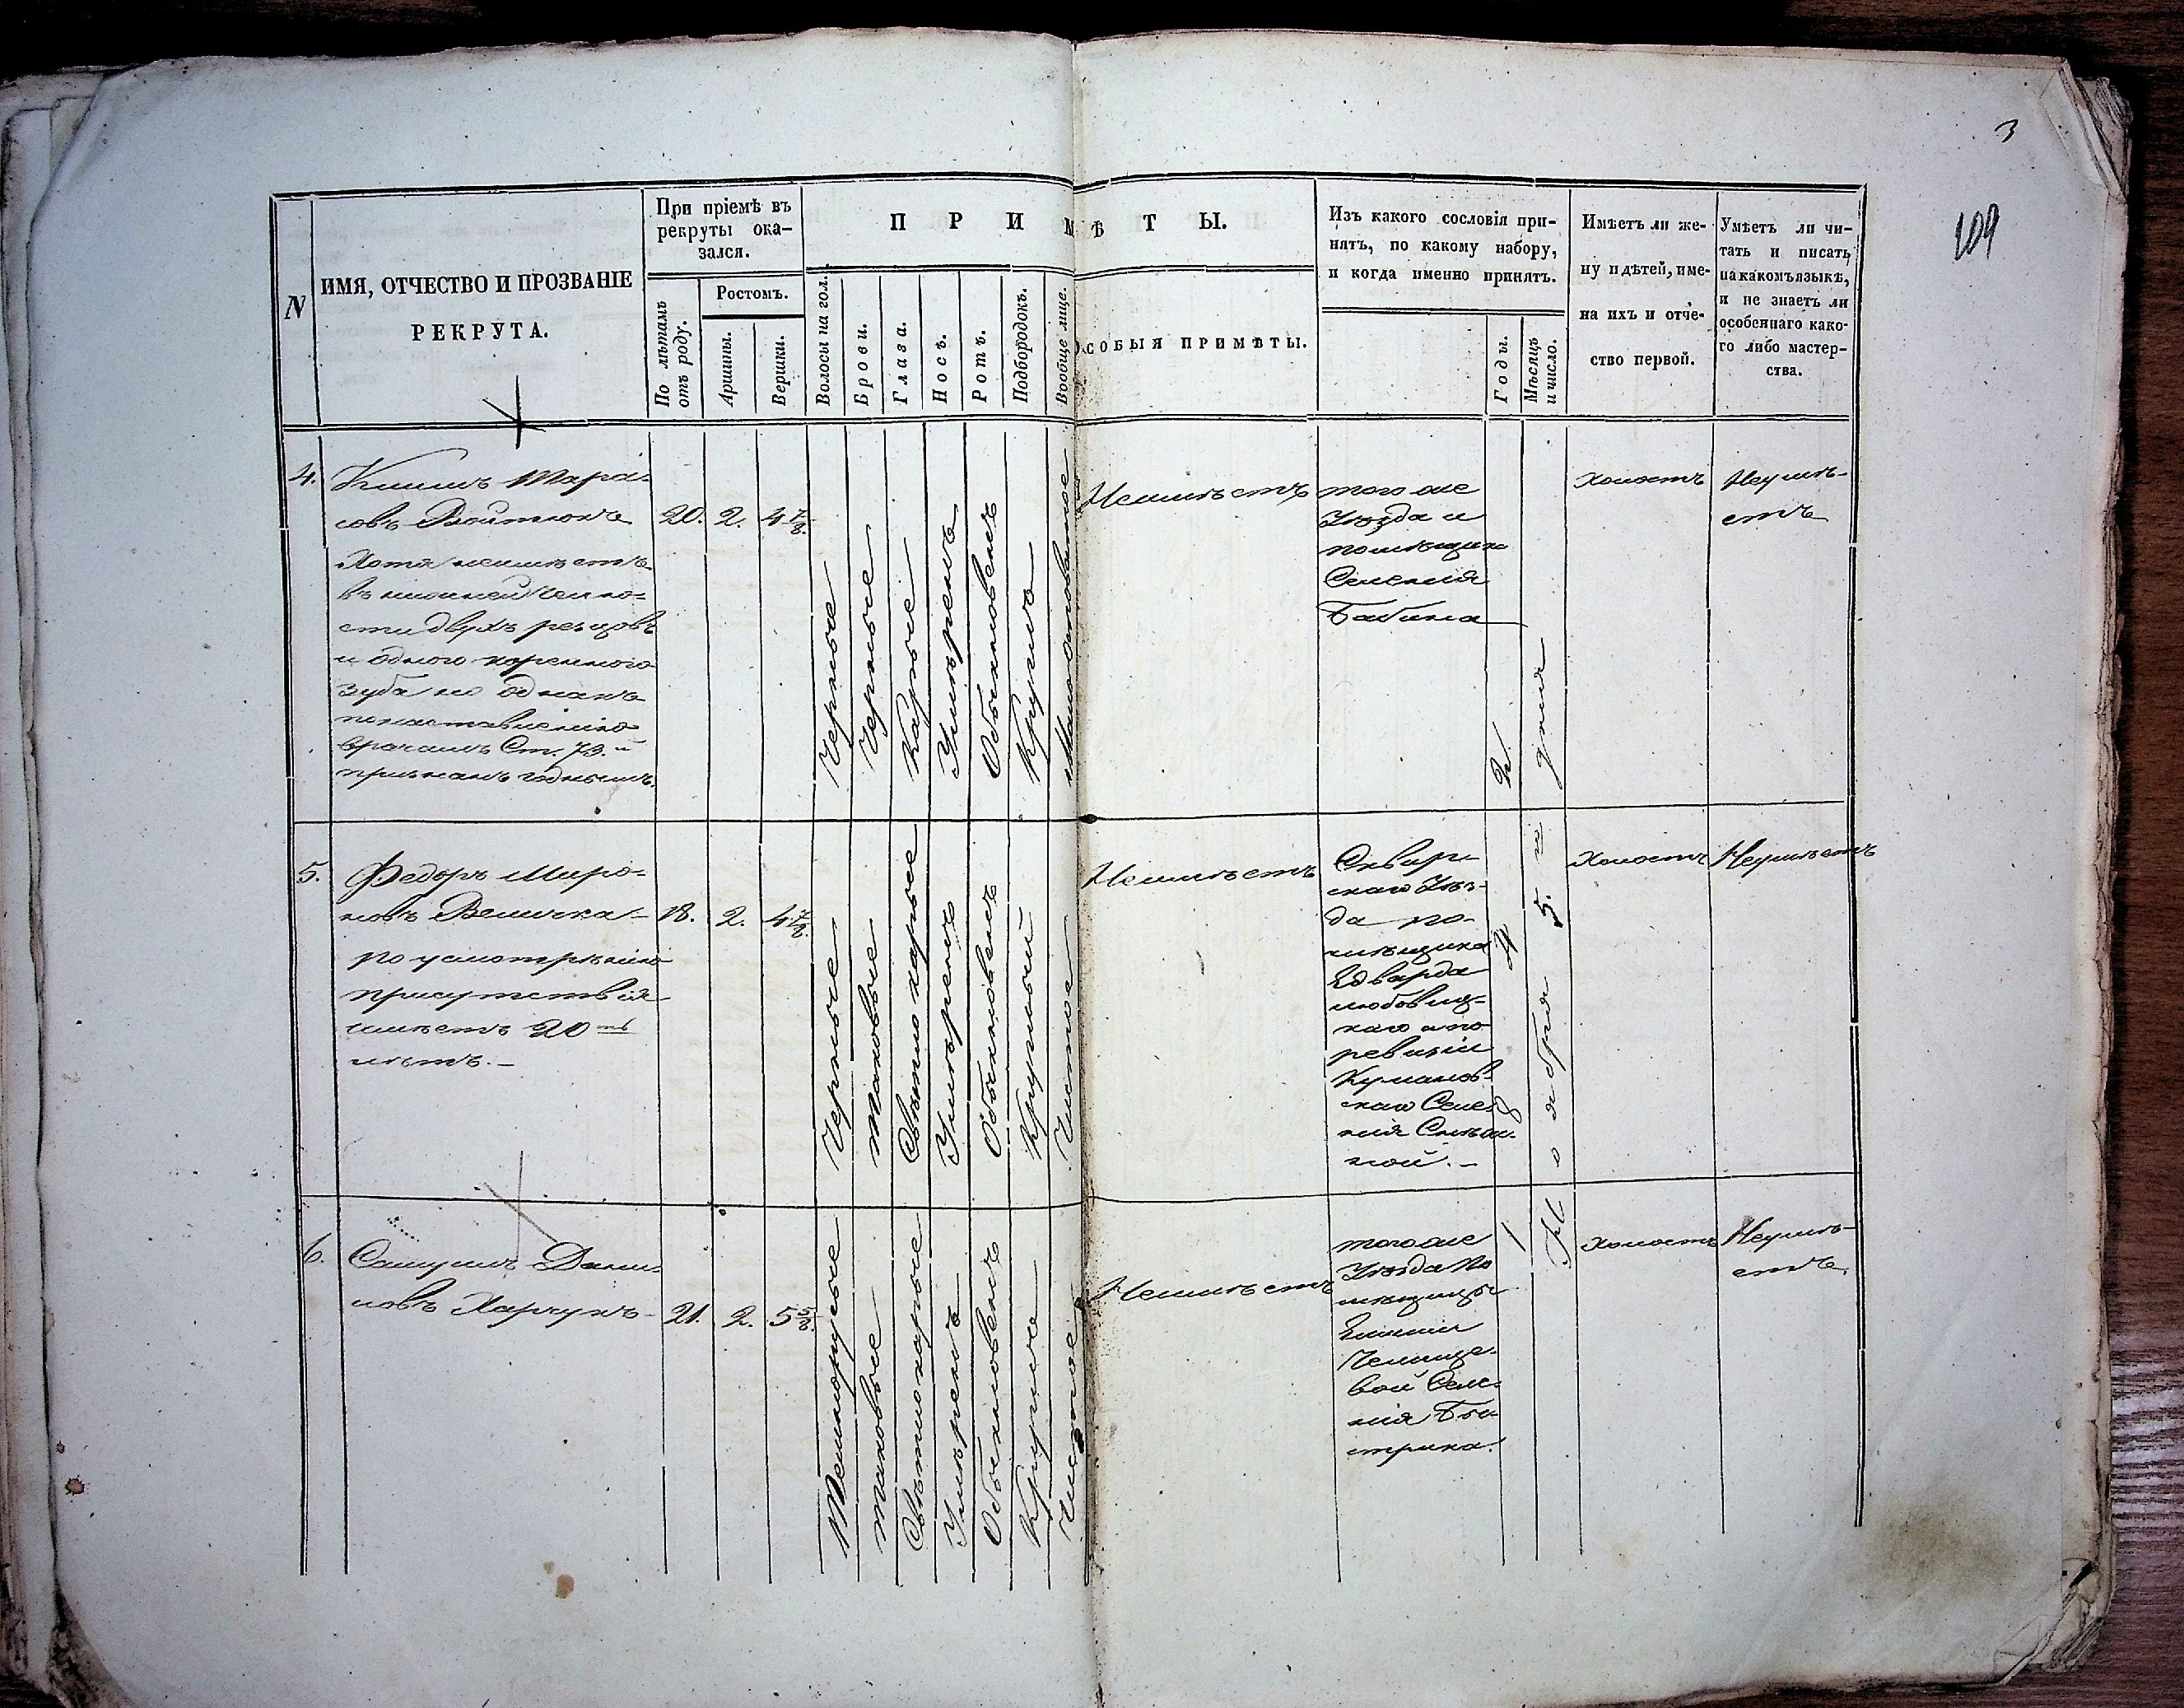 3
109
N
ИМЯ, ОТЧЕСТВО И ПРОЗВАНІЕ
РЕКРУТА.
При пріемѣ въ
рекруты ока-
зался.
По лѣтамъ
отъ роду.
Ростомъ.
Аршины.
Вершки.
ПРИМѢТЫ.
Волосы на гол.
Брови.
Глаза.
Носъ.
Ротъ.
Подбородокъ.
Вообще лице.
ОСОБЫЯ ПРИМѢТЫ.
Изъ какого сословія при-
нятъ, по какому набору,
и когда именно принятъ.
Годы.
Мѣсяцъ
и число.
Имѣетъ ли же-
ну и дѣтей, име-
на ихъ и отче-
ство первой.
Умѣетъ ли чи-
тать и писать
на какомъ языкѣ,
и не знаетъ ли
особеннаго како-
го либо мастер-
ства.
4.
Климъ Тара-
совъ Войтюкъ
Хотя неимѣетъ
въ нижней челю-
сти двухъ резцовъ
и одного коренного
зуба но однакъ
по наставленію
врачамъ Ст. 73.й
признанъ годнымъ.
20.
2.
4 7/8.
Черные
Черные
Каріе
Умѣренъ
Обыкновенъ
Круглъ
Неимѣетъ
того же
Уѣзда и
помѣщика
Селенія
Бабина
холостъ
Неумѣ-
етъ
5.
Федоръ Миро-
новъ Величка
по усмотрѣнію
присутствія
имѣетъ 20ть
лѣтъ.-
18.
2.
4 7/8.
Черные
таковые
Свѣтло карые
Умѣренъ
Обыкновенъ
Круглый
Чистое
Неимѣетъ
Сквир-
скаго Уѣз-
да по-
мѣщика
Едварда
скаго а по
ревизіи
ской.-
Ноября 5. дня
Холостъ
Неумѣетъ
6.
Самуилъ Дани-
ловъ Харчукъ
21.
2.
5 5/8.
Темнорусые
таковые
Свѣтлокарые
Умѣренъ
Обыкновенъ
Круглъ
Чистое
Неимѣетъ
того же
Уѣзда По
мѣщицы
вой Селе-
нія Бы-
стрика.
холостъ
Неумѣ-
етъ.